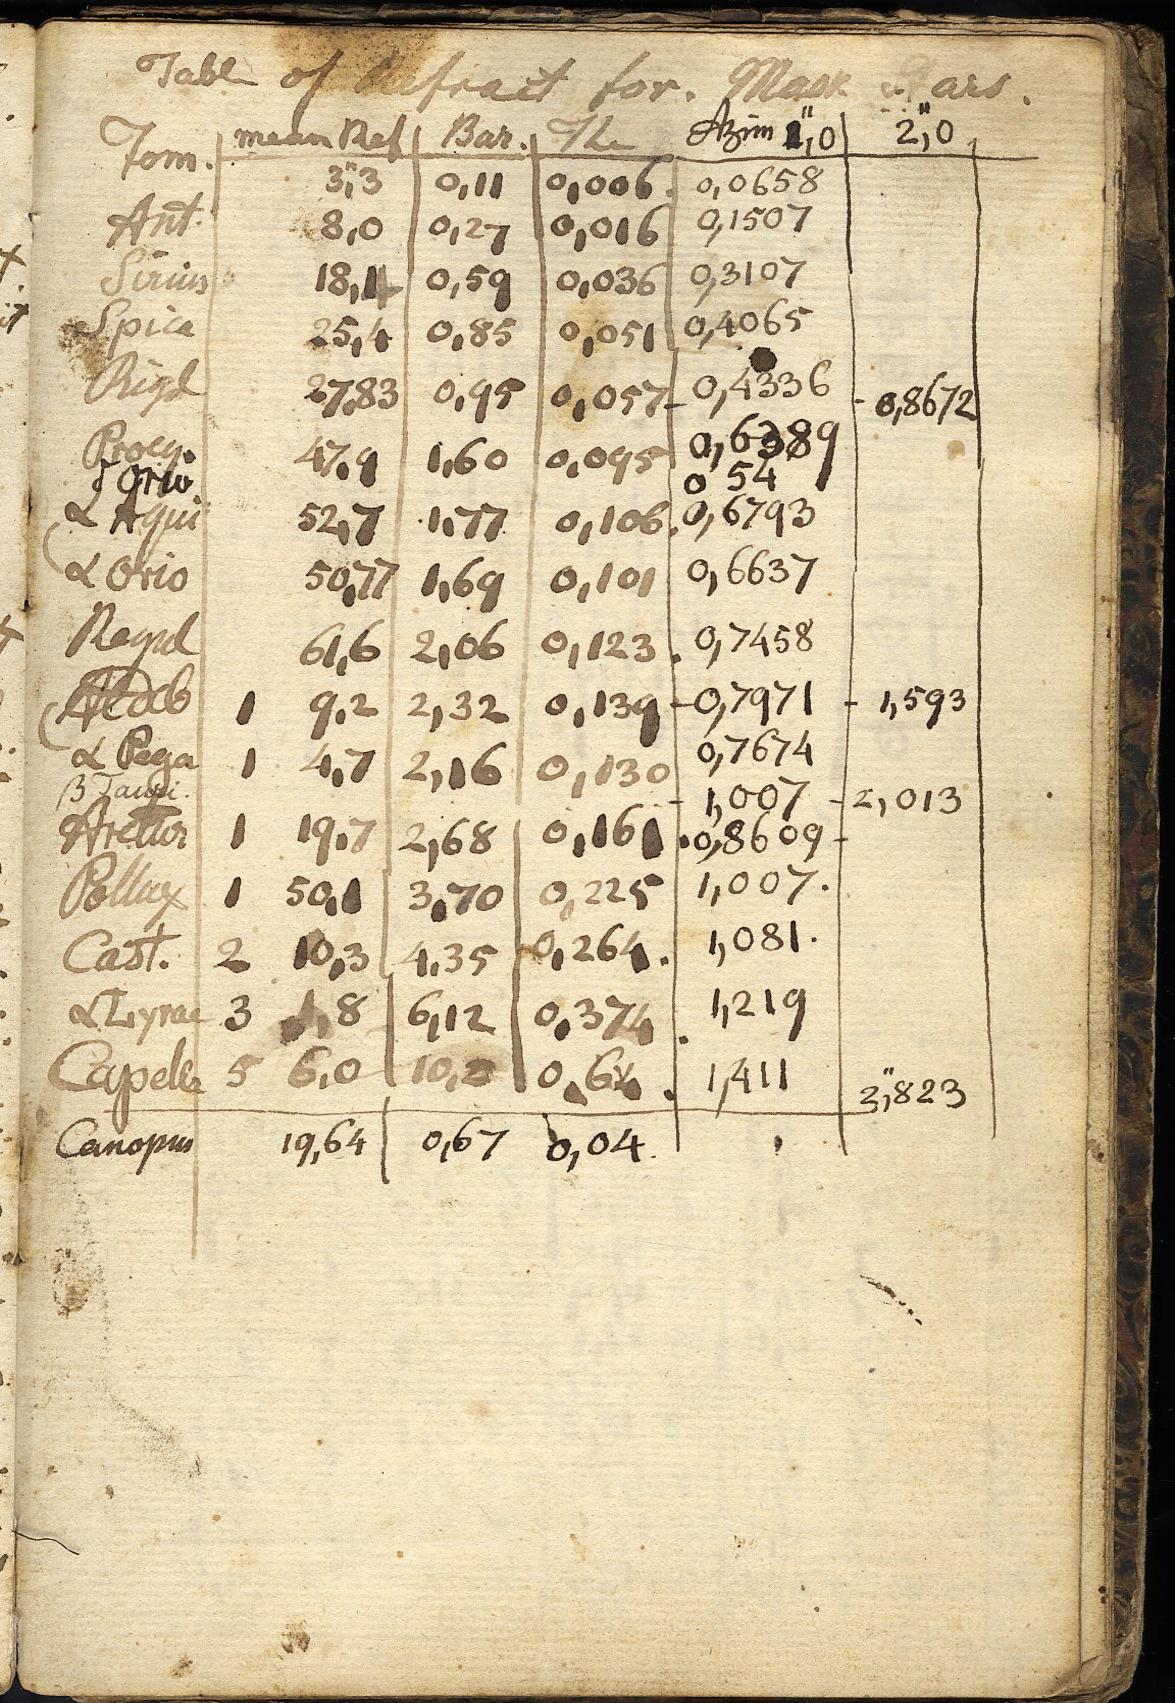 Table of Refract for. Mask Stars.
Tom. mean Ref Bar. Th Azim 1",0 2",0
3",3 0,11 0,006 0,0658
Ant. 8,0 0,27 0,016 0,1507
Sirius 18,4 0,59 0,036 0,3107
Spica 25,4 0,85 0,051 0,4065
Rigl 27,83 0,95 0,057 - 0,4336 - 0,8672
Procy. 47,9 1,60 0,095 0,6389
Orio 0 54
α Aqui 52,7 1,77 0,106. 0,6793
α Orio 50,77 1,69 0,101 0,6637
Regul 61,6 2,06 0,123. 0,7458
Aldeb 1 9,2 2,32 0,139 - 0,7971 - 1,593
α Pega 1 4,7 2,16 0,130 0,7674
β Tauri. - 1,007 - 2,013
Arctur 1 19,7 2,68 0,161 . 0,8609 -
Pollux 1 50,1 3,70 0,225 1,007.
Cast. 2 10,3 4,35 0,264. 1,081.
α Lyrae 3 ,8 6,12 0,374. 1,219
Capella 5 6,0 10,2 0,64. 1,411 2",823
Canopus 19,64 0,67 0,04.